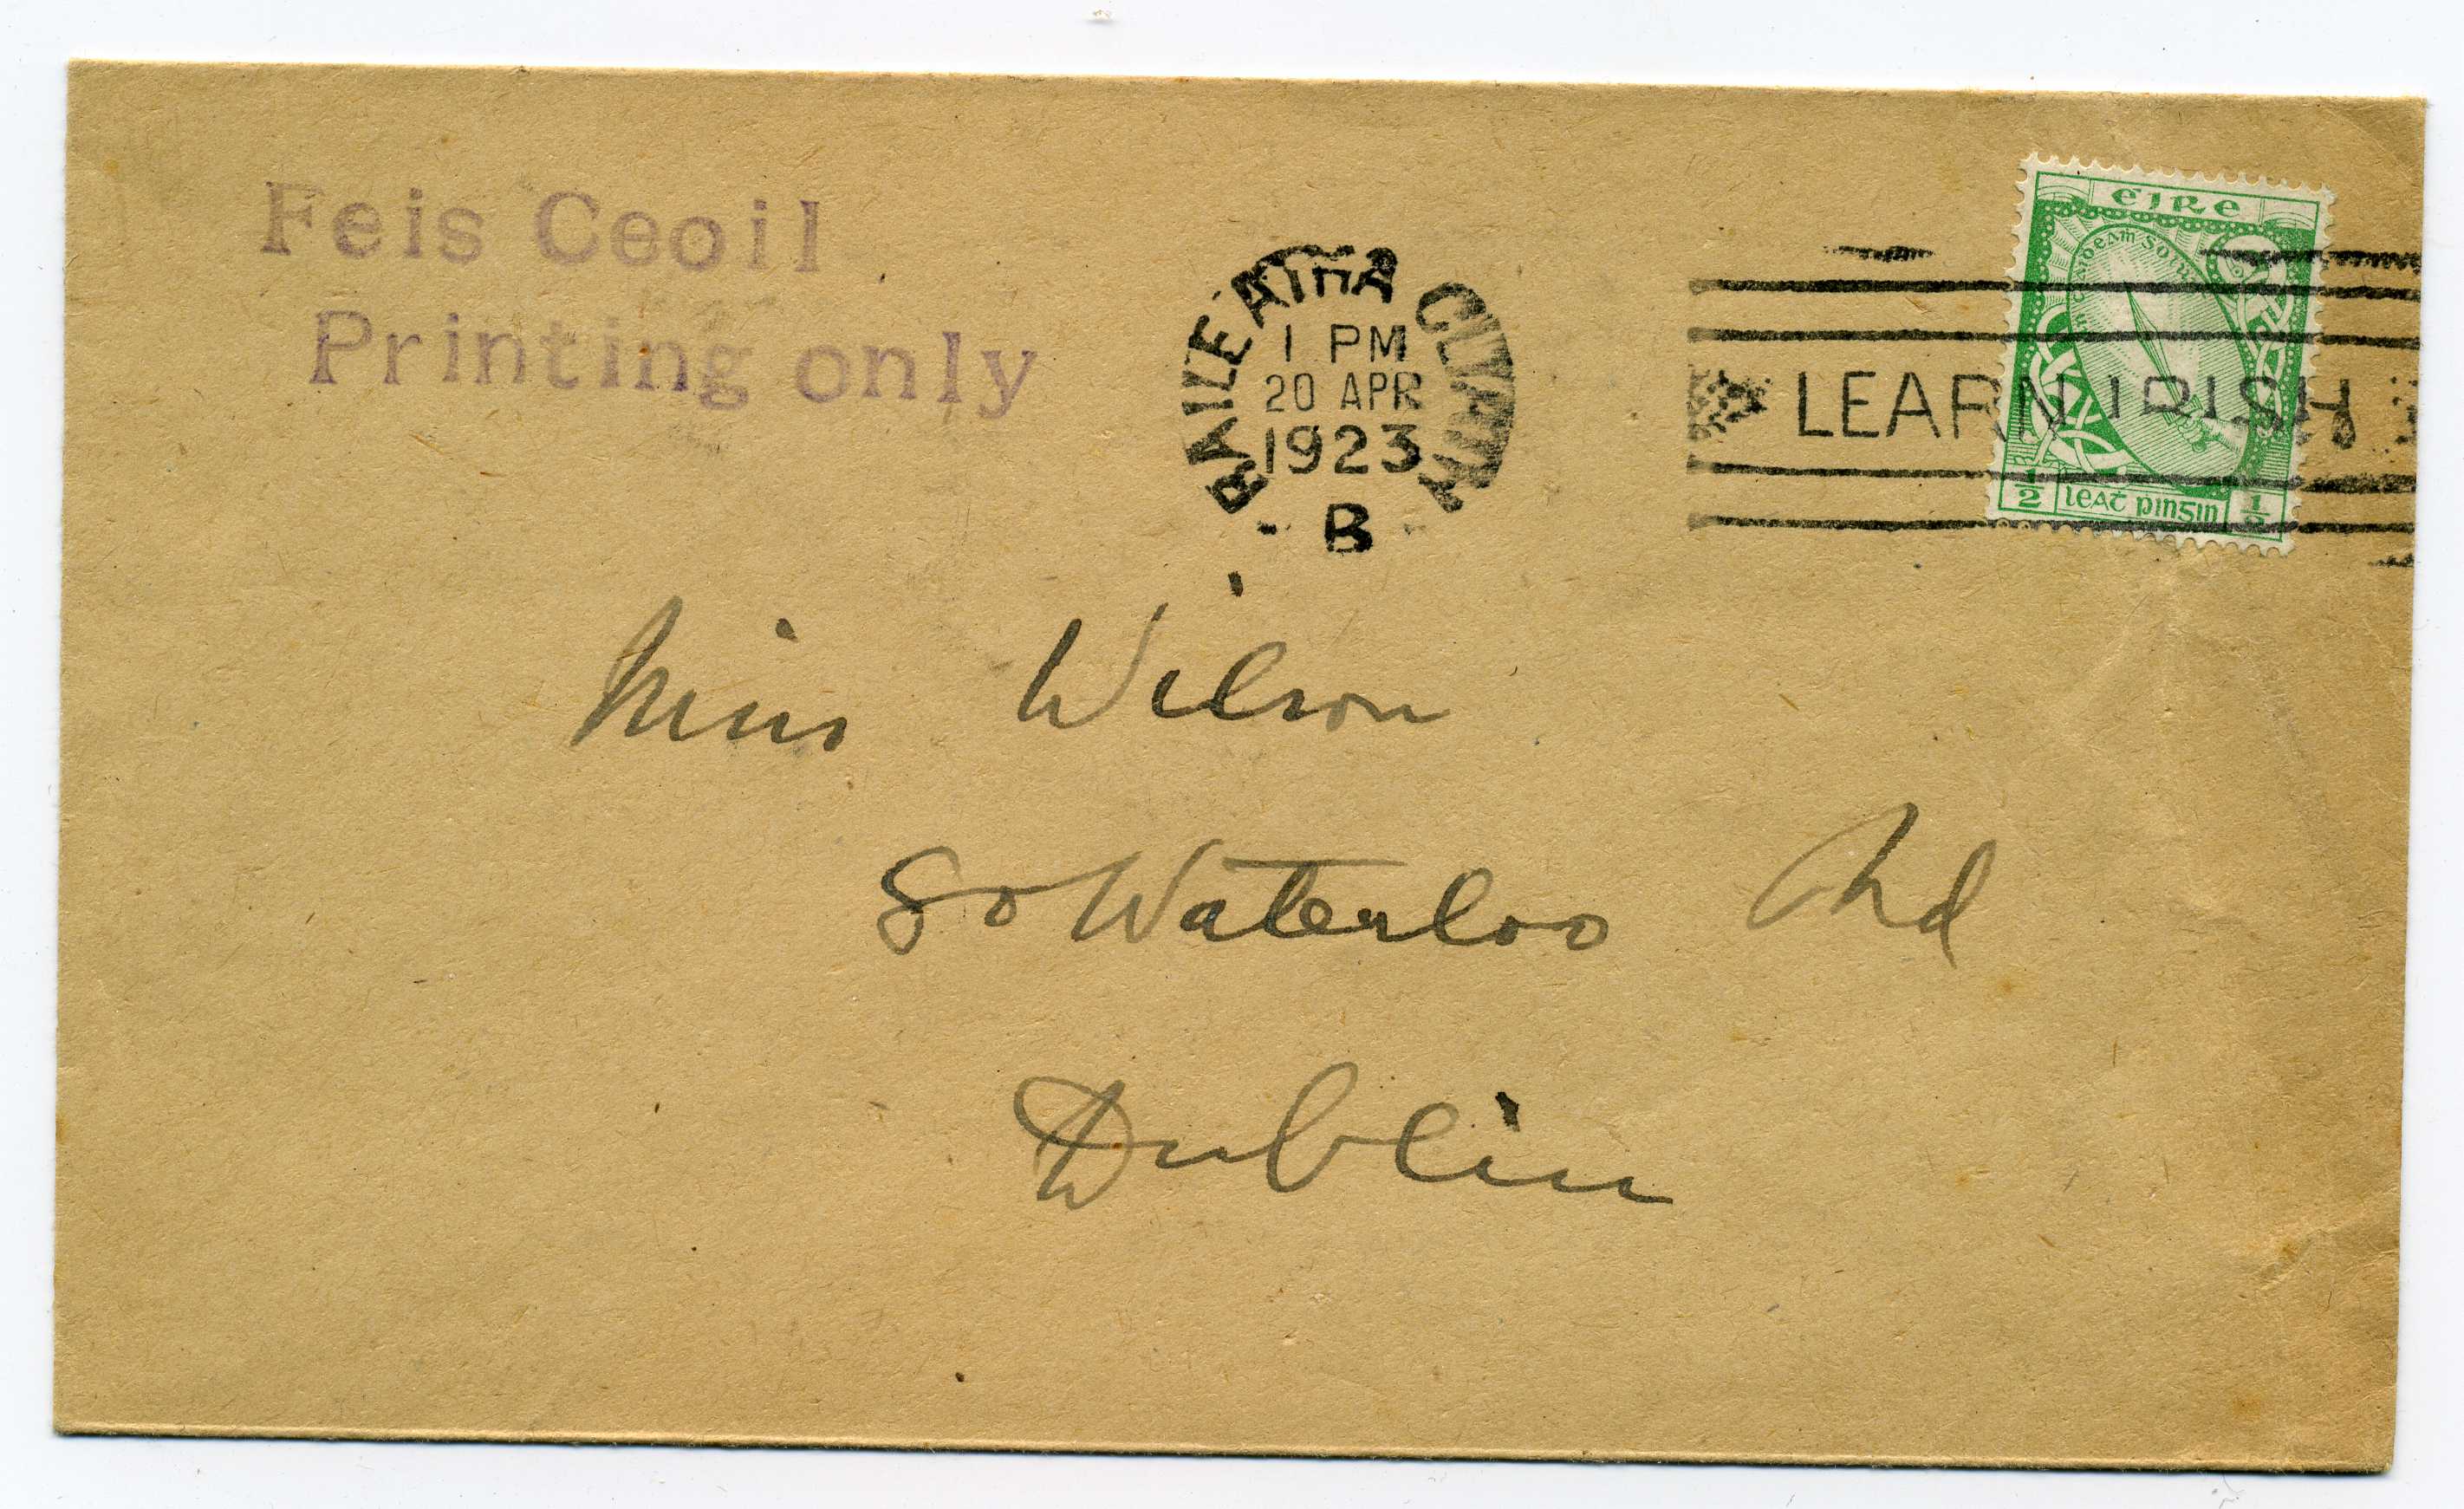 Feis Ceoil
Printing only
BAILE ÁTHA CLIATH
1 PM
20 APR
1923
B
LEARN IRISH
éire
½ leat pingin ½
Miss Wilson
80 Waterloo Rd
Dublin